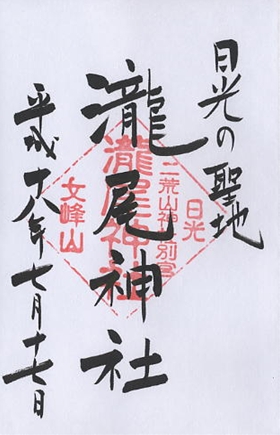 日光の聖地
瀧尾神社
平成十八年七月十七日
日光
二荒山神社別宮
瀧尾神社
女峰山